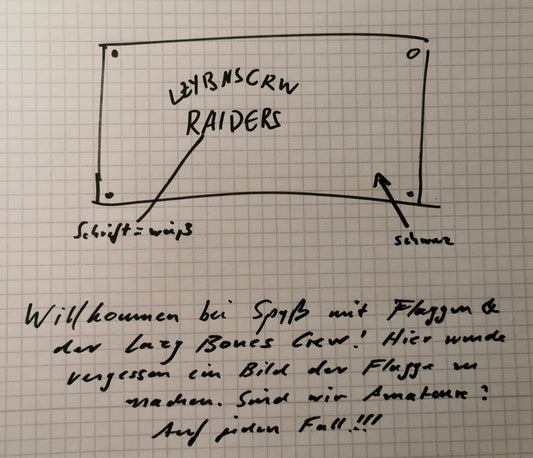 LZYBNSCRW
RAIDERS
Schrift = weiß
schwarz
Willkommen bei Spyß mit Flaggen &
der Lazy Bones Crew! Hier wurde
vergessen ein Bild der Flagge zu
machen. Sind wir Amateure?
Auf jeden Fall!!!